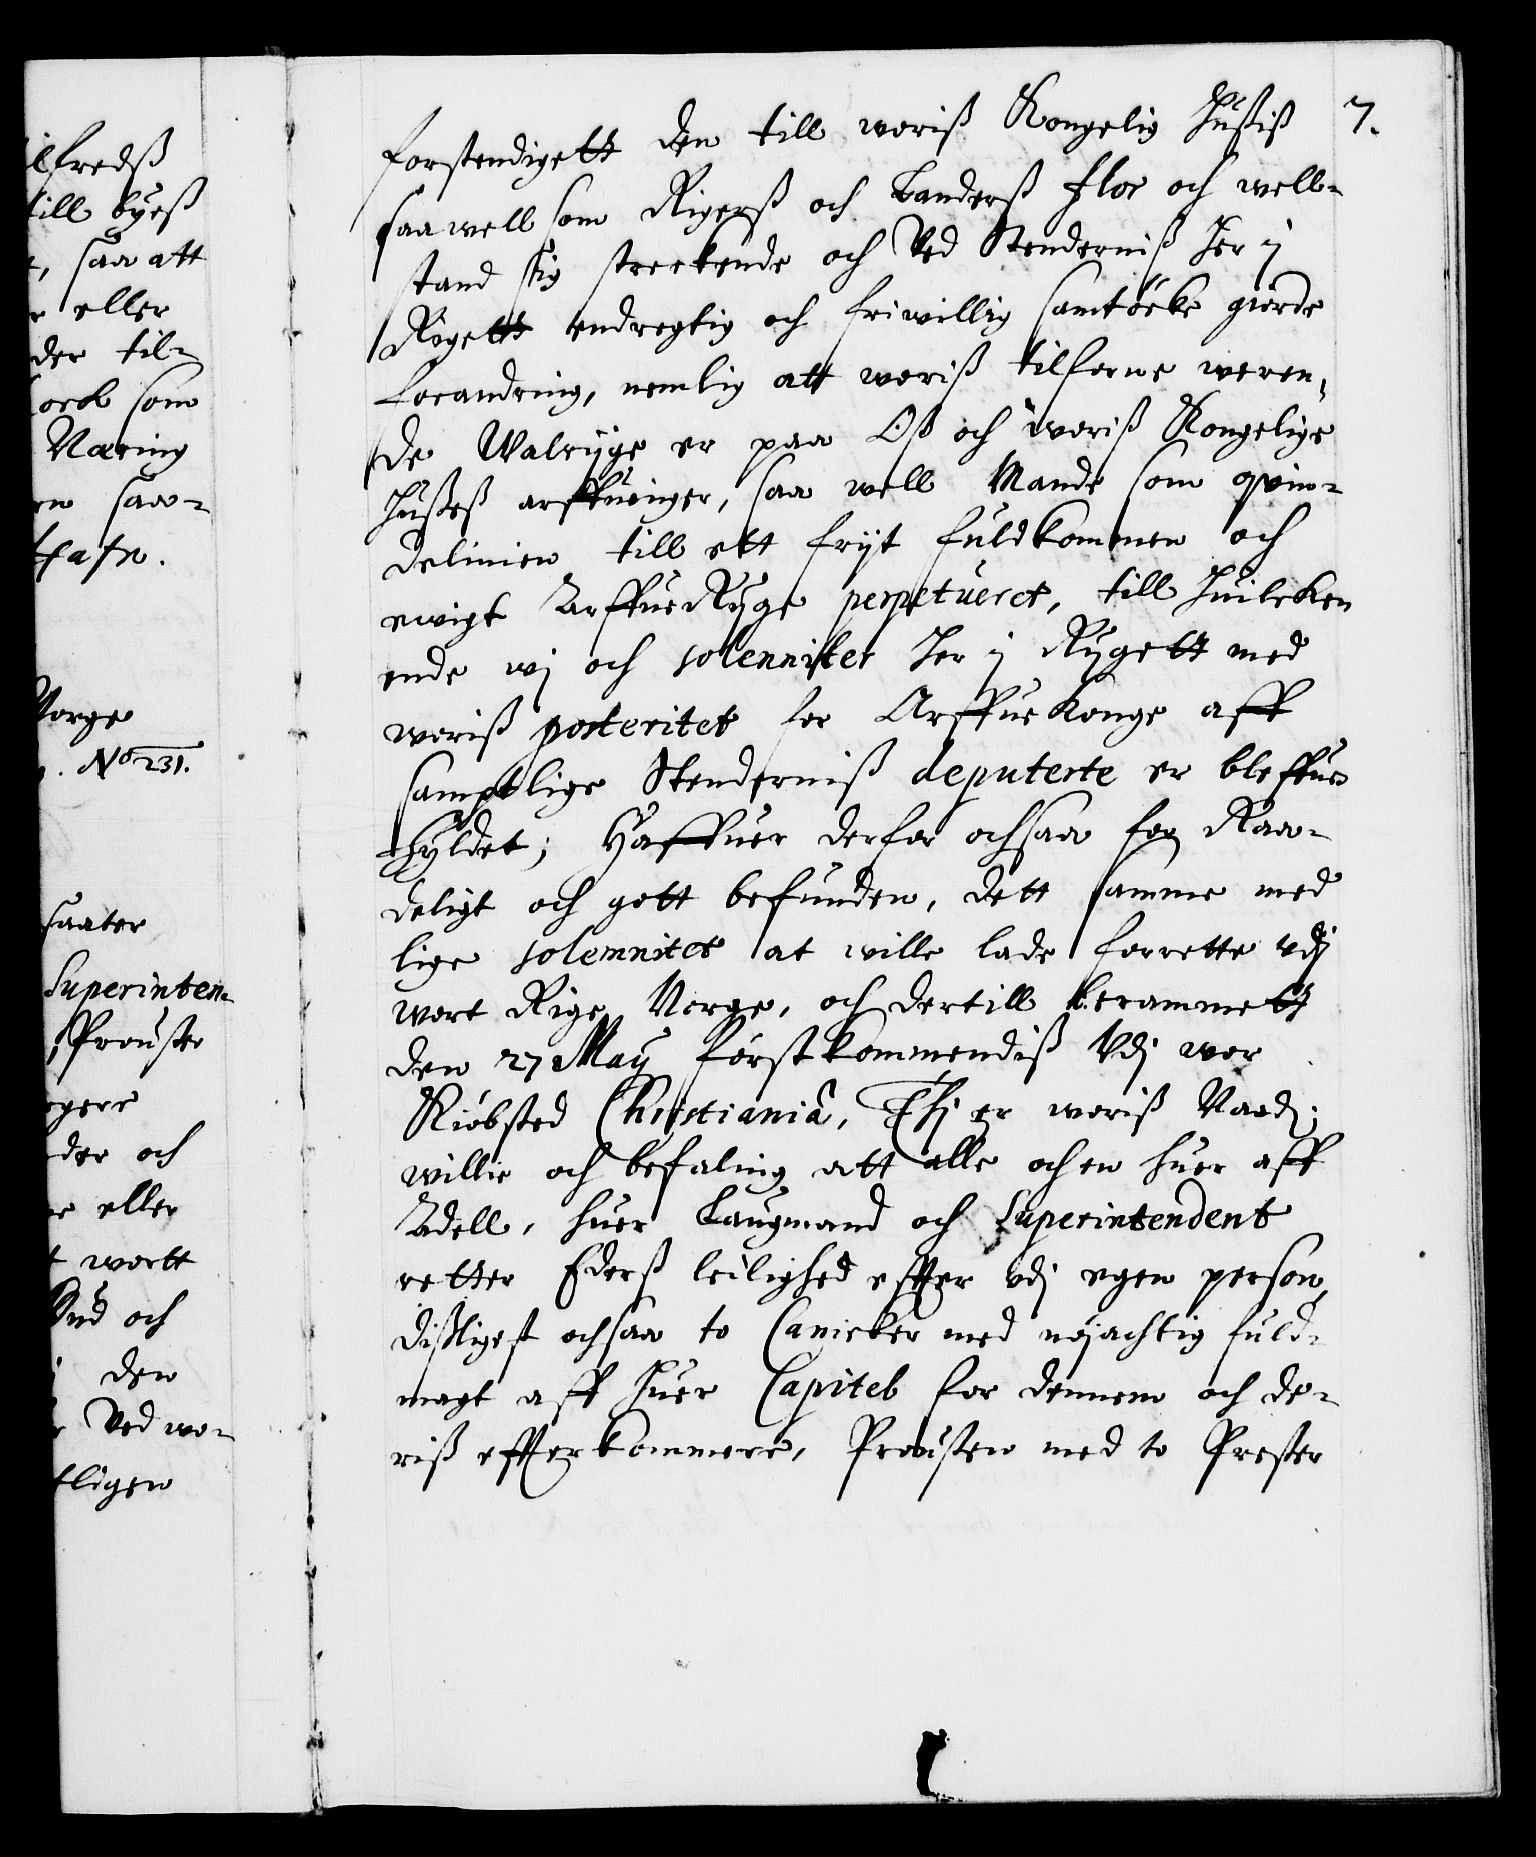 ilfredß
till byeß
, saa att
eller
der til-
som
Næring
saa-
fatn.
Norge
. No 231.
saater
Superinten-
Prouste
gere
der och
eller
wortt
Sud och
den
Ved wo-
tligen
7.
forstendigett den till woriß Kongelig Hußiß
saa well som Rigerß och Landerß flor och well-
stand sig streckende och Ved Stenderniß her i
Rigett endregtig och friwillig samtöcke giorde
forandring, nemlig att woriß tilforne weren-
de Walryge er paa Oß och woriß Kongelige
Hußeß arffuinger, saa well Mande som qvin-
delinien till ett fryt fuldkommen och
ewigt ArffueRyge perpetueret, till huilcken
ende wj och solenniter her i Rygett med
woriß posteritet for ArffueKonge aff
samptlige Stenderniß deputerte er bleffuen
hyldet; Haffuer derfor ochsaa for Raa-
deligt och gott befunden, dett samme med
lige solemnitet at wille lade forrette vdj
wort Rige Norge, och dertill berammett
den 27 May förstkommendiß Vdj wor
Kiöbsted Christiania, Thj er woriß Naadj:
willie och befaling att alle och en huer aff
Adell, huer Laugmand och Superintendent
retter Ederß leilighed effter vdj egen person,
dißligest ochsaa to Canicker med nöjachtig fuld-
magt aff huer Capitel for dennem och de-
riß effterkommere, Prousten med to Prester